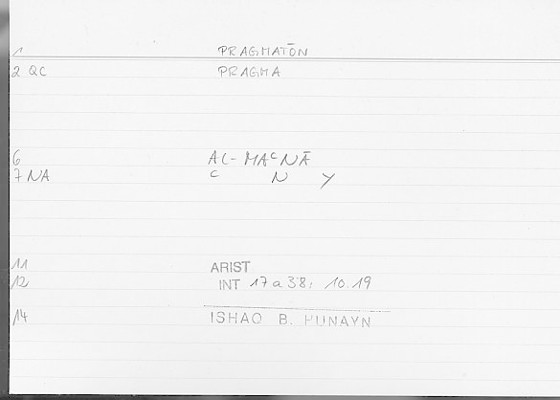 1 PRAGMATŌN
2 QC PRAGMA
6 AL-MAᶜNĀ
7 NA C N Y
11 ARIST
12 INT 17a38; 10.19
14 ISHAQ B. HUNAYN